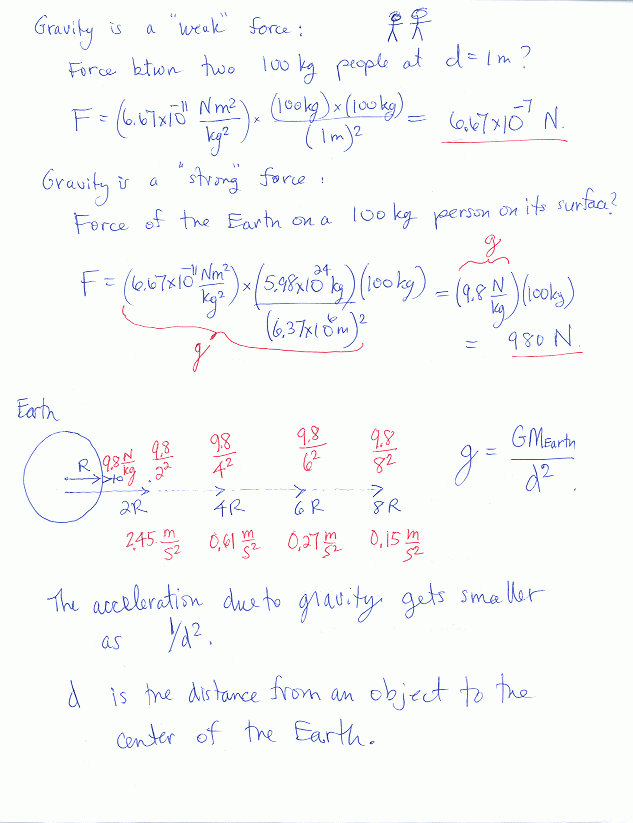 Gravity is a "weak" force:
Force btwn two 100 kg people at d = 1 m?
F = (6.67x10^-11 Nm²/kg²) x (100kg)x(100kg)/(1m)² = 6.67x10^-7 N.
Gravity is a "strong" force:
Force of the Earth on a 100 kg person on its surface?
g
F = (6.67x10^-11 Nm²/kg²) x (5.98x10^24 kg)(100kg)/(6.37x10^6 m)² = (9.8 N/kg)(100kg)
g = 980 N.
Earth
R 9.8 N/kg 9.8/2² 9.8/4² 9.8/6² 9.8/8² g = GMEarth/d²
2R 4R 6R 8R
2.45 m/s² 0.61 m/s² 0.27 m/s² 0.15 m/s²
The acceleration due to gravity gets smaller
as 1/d².
d is the distance from an object to the
center of the Earth.